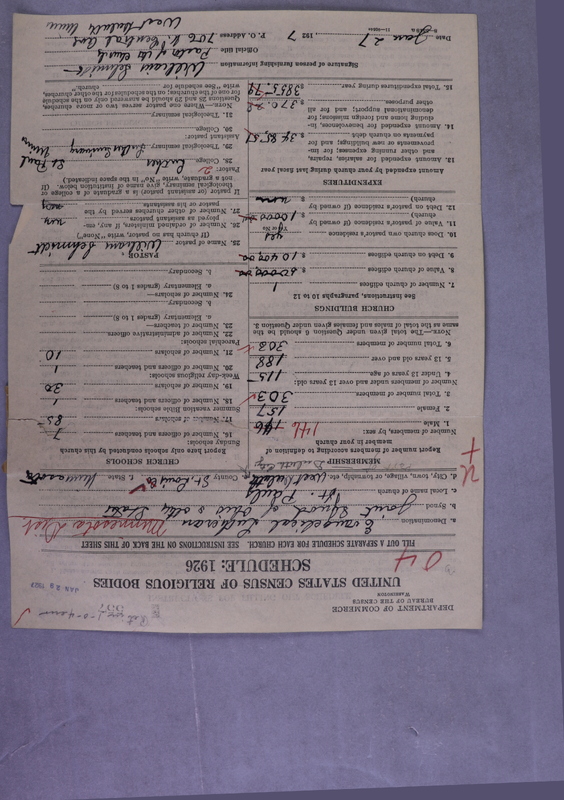 DEPARTMENT OF COMMERCE
BUREAU OF THE CENSUS
WASHINGTON
UNITED STATES CENSUS OF RELIGIOUS BODIES
SCHEDULE: 1926
JAN 28 1927
04
FILL OUT A SEPARATE SCHEDULE FOR EACH CHURCH. SEE INSTRUCTIONS ON THE BACK OF THIS SHEET
a. Denomination Evangelical Lutheran Minnesota Dist
b. Synod Joint Synod of Ohio & other States
c. Local name of church St. Pauls
d. City, town, village, or township, etc. West Duluth County St. Louis Co State Minnesota
MEMBERSHIP
Report number of members according to definition of member in your church
Number of members, by sex:
1. Male 146 146
2. Female 157
3. Total number of members 303
Number of members under and over 13 years old:
4. Under 13 years of age 115
5. 13 years old and over 188
6. Total number of members 303
NOTE.—The total given under Question 6 should be the same as the total of males and females given under Question 3.
CHURCH BUILDINGS
See Instructions, paragraphs 10 to 12
7. Number of church edifices 1
8. Value of church edifices $
9. Debt on church edifices $
10. Does church own pastor's residence yes
(Yes or No)
11. Value of pastor's residence (if owned by church) $
12. Debt on pastor's residence (if owned by church) $ none
EXPENDITURES
Amount expended by your church during last fiscal year
13. Amount expended for salaries, repairs, and other running expenses; for improvements or new buildings; and for payments on church debt $ 3485.51
14. Amount expended for benevolences, including home and foreign missions; for denominational support; and for all other purposes $ 370.28
15. Total expenditures during year $ 3855.79
CHURCH SCHOOLS
Report here only schools conducted by this church
Sunday schools:
16. Number of officers and teachers 7
17. Number of scholars 85
Summer vacation Bible schools:
18. Number of officers and teachers 1
19. Number of scholars 30
Week-day religious schools:
20. Number of officers and teachers 1
21. Number of scholars 10
Parochial schools:
22. Number of administrative officers
23. Number of teachers—
a. Elementary (grades 1 to 8)
b. Secondary
24. Number of scholars—
a. Elementary (grades 1 to 8)
b. Secondary
PASTOR
25. Name of pastor William Schmidt
(If church has no pastor, write "None")
26. Number of ordained ministers, if any, employed as assistant pastors
27. Number of other churches served by the pastor or his assistants
If pastor (or assistant pastor) is a graduate of a college or theological seminary, give name of institution below. (If not a graduate, write "No" in the space indicated.)
Pastor:
28. College Luther St Paul
29. Theological seminary Luther Seminary Minn
Assistant pastor:
30. College
31. Theological seminary
NOTE.—Where a pastor serves two or more churches, Questions 28 and 29 should be answered only on the schedule for one of the churches; on the schedules for the other churches, write "See schedule for church."
Signature of person furnishing information William Schmidt
Official title Pastor of the church
P. O. Address 706 N. Central Ave
West Duluth Minn
Date Jan 27, 1927